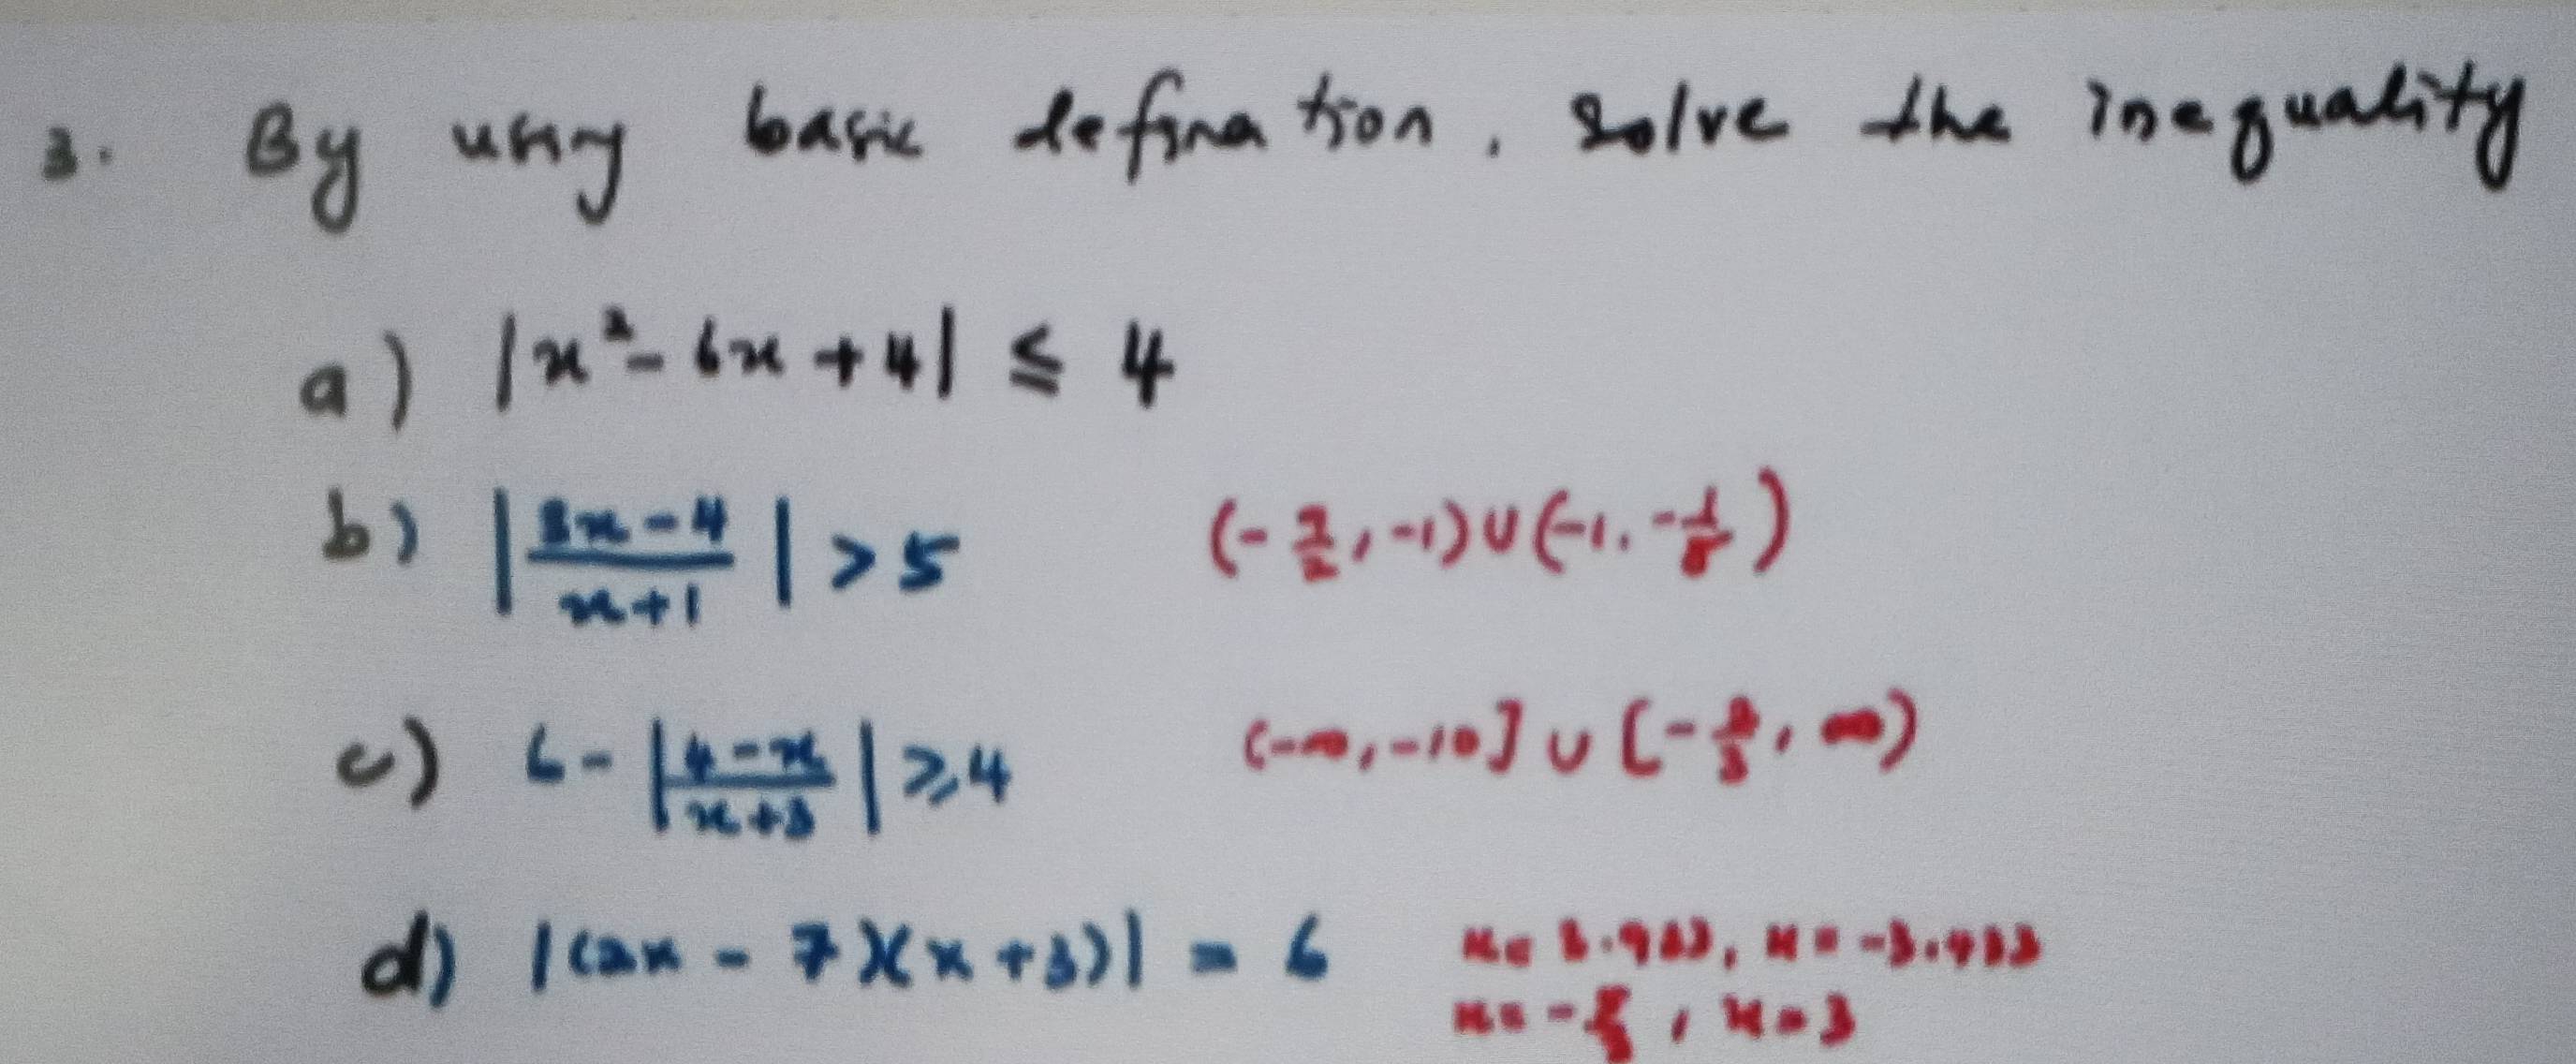 3. By using basic defination, solve the inequality
a) |x² - 6x + 4| ≤ 4
b) |(3x - 4)/(x + 1)| > 5 (-9/2, -1) ∪ (-1, -1/8)
c) 6 - |(4 - x)/(x + 3)| ≥ 4 (-∞, -10] ∪ [-2/3, ∞)
d) |(2x - 7)(x + 3)| = 6 x = 3.933, x = -3.433
x = -5/2, x = 3